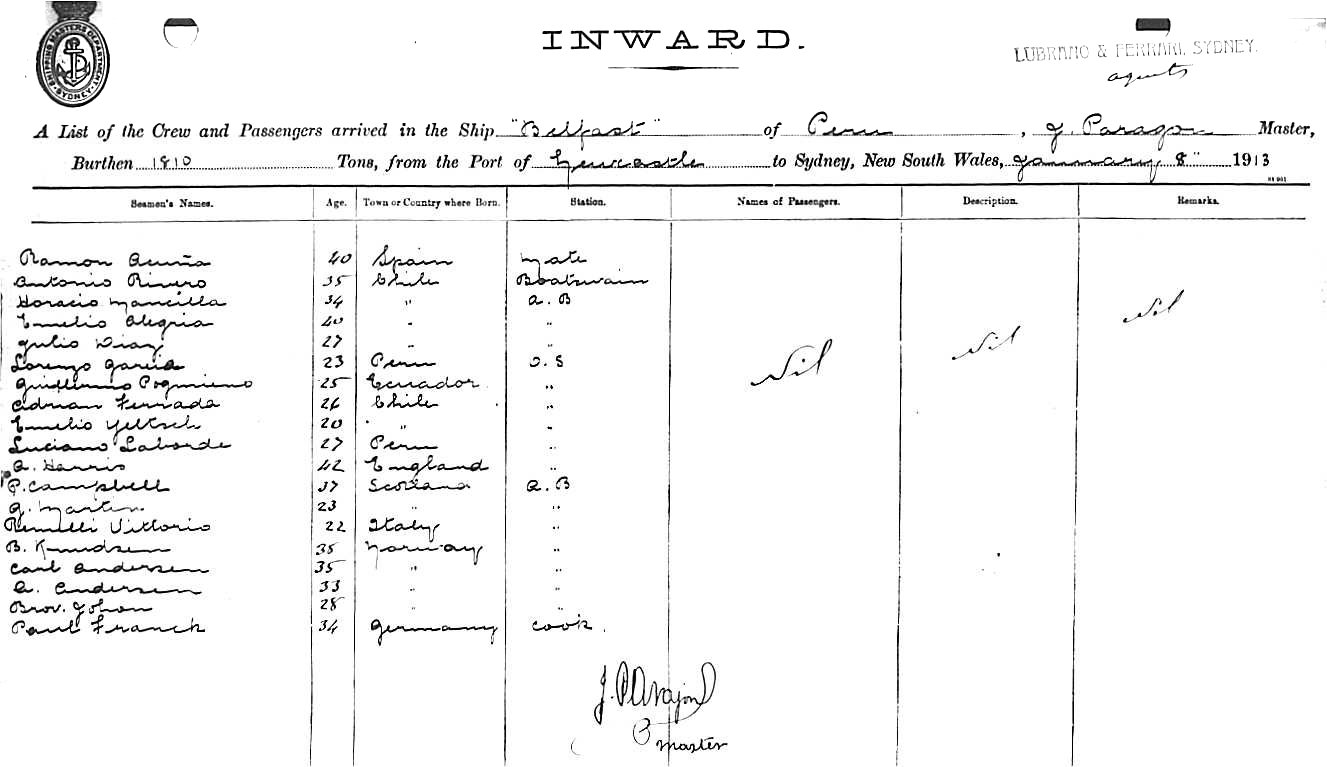 SHIPPING MASTERS DEPARTMENT SYDNEY
INWARD.
LUBRANO & FERRARI, SYDNEY.
agents
A List of the Crew and Passengers arrived in the Ship "Belfast" of Peru, J. Paragon Master,
Burthen 1810 Tons, from the Port of Newcastle to Sydney, New South Wales, January 8" 1913
Seamen's Names. Age. Town or Country where Born. Station. Names of Passengers. Description. Remarks.
Ramon Acuña 40 Spain Mate
Antonio Rivero 35 Chile Boatswain
Horacio Mancilla 34 " A.B Nil Nil Nil
Emilio Alegria 40 " "
Julio Diaz 27 " "
Lorenzo Garcia 23 Peru O.S
Guillermo 25 Ecuador "
Adrian Ferrada 26 Chile "
Emilio 20 " "
Luciano Laborde 27 Peru "
A. Harris 42 England "
P. Campbell 37 Scotland A.B
J. Martin 23 " "
Vittorio 22 Italy "
B. Knudsen 35 Norway "
Carl Andersen 35 " "
A. Andersen 33 " "
Brov. Johan 28 " "
Paul Franck 34 Germany Cook.
Master